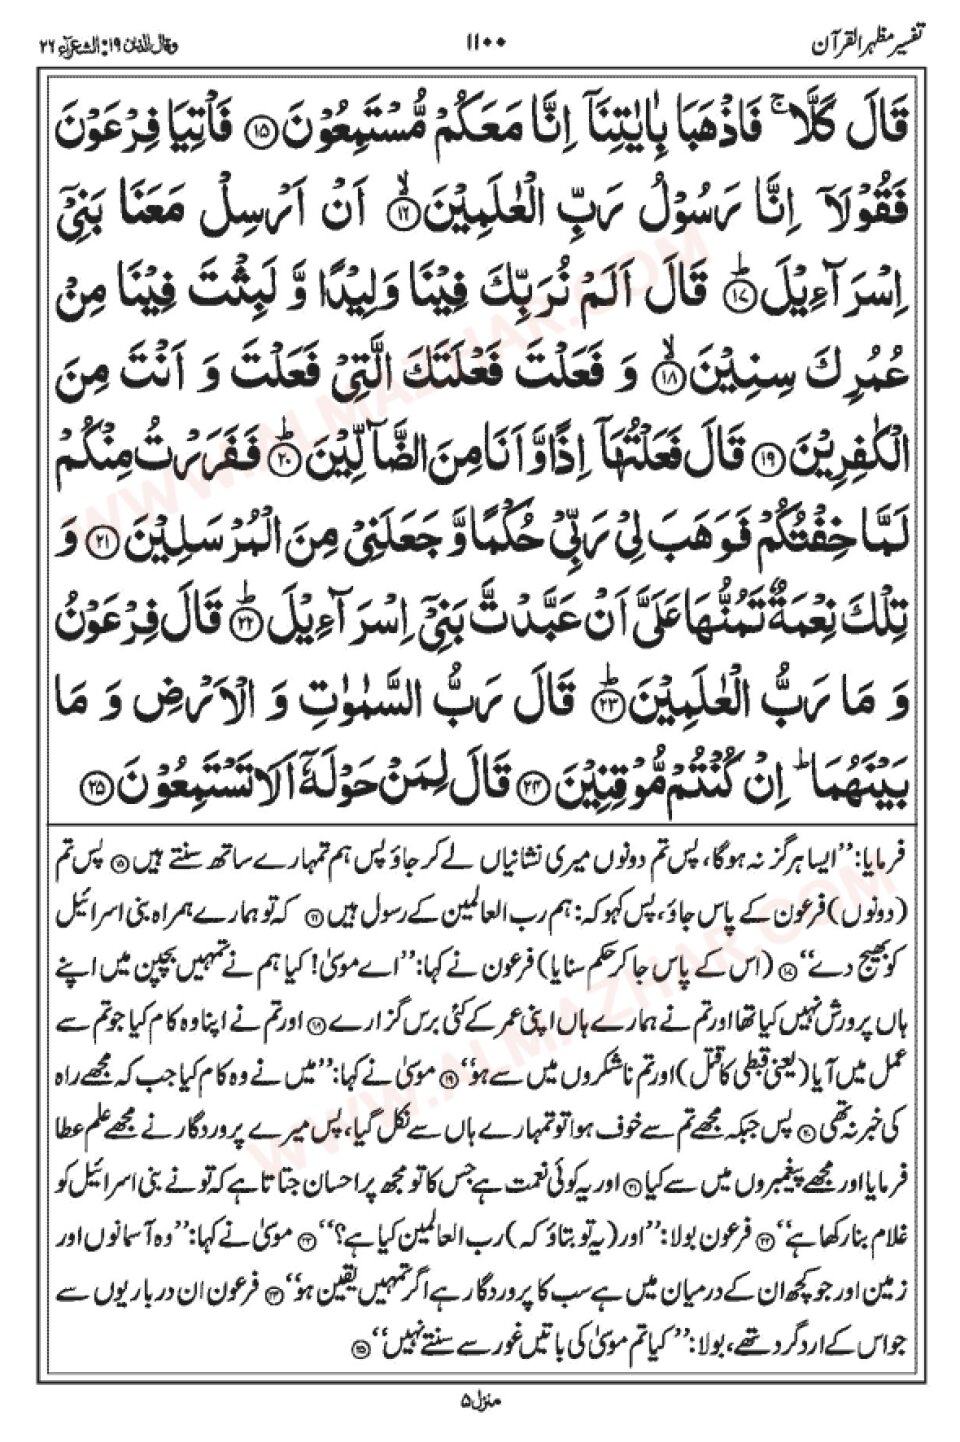 تفسیر مظہر القرآن
۱۱۰۰
وقال الذین ۱۹: الشعرآء ۲۶
قَالَ كَلَّا ۚ فَاذْهَبَا بِاٰيٰتِنَاۤ اِنَّا مَعَكُمْ مُّسْتَمِعُوْنَ ﴿۱۵﴾ فَاْتِيَا فِرْعَوْنَ
فَقُوْلَاۤ اِنَّا رَسُوْلُ رَبِّ الْعٰلَمِيْنَ ﴿۱۶﴾ۙ اَنْ اَرْسِلْ مَعَنَا بَنِیْۤ
اِسْرَآءِيْلَ ﴿۱۷﴾ؕ قَالَ اَلَمْ نُرَبِّكَ فِيْنَا وَلِيْدًا وَّ لَبِثْتَ فِيْنَا مِنْ
عُمُرِكَ سِنِيْنَ ﴿۱۸﴾ۙ وَ فَعَلْتَ فَعْلَتَكَ الَّتِیْ فَعَلْتَ وَ اَنْتَ مِنَ
الْكٰفِرِيْنَ ﴿۱۹﴾ قَالَ فَعَلْتُهَاۤ اِذًا وَّ اَنَا مِنَ الضَّآلِّيْنَ ﴿۲۰﴾ؕ فَفَرَرْتُ مِنْكُمْ
لَمَّا خِفْتُكُمْ فَوَهَبَ لِیْ رَبِّیْ حُكْمًا وَّ جَعَلَنِیْ مِنَ الْمُرْسَلِيْنَ ﴿۲۱﴾ وَ
تِلْكَ نِعْمَةٌ تَمُنُّهَا عَلَیَّ اَنْ عَبَّدْتَّ بَنِیْۤ اِسْرَآءِيْلَ ﴿۲۲﴾ؕ قَالَ فِرْعَوْنُ
وَ مَا رَبُّ الْعٰلَمِيْنَ ﴿۲۳﴾ؕ قَالَ رَبُّ السَّمٰوٰتِ وَ الْاَرْضِ وَ مَا
بَيْنَهُمَا ؕ اِنْ كُنْتُمْ مُّوْقِنِيْنَ ﴿۲۴﴾ قَالَ لِمَنْ حَوْلَهٗۤ اَلَا تَسْتَمِعُوْنَ ﴿۲۵﴾
فرمایا: ’’ایسا ہرگز نہ ہوگا، پس تم دونوں میری نشانیاں لے کر جاؤ پس ہم تمہارے ساتھ سنتے ہیں ﴿۱۵﴾ پس تم
(دونوں) فرعون کے پاس جاؤ، پس کہو کہ: ہم رب العالمین کے رسول ہیں ﴿۱۶﴾ کہ تو ہمارے ہمراہ بنی اسرائیل
کو بھیج دے‘‘ ﴿۱۷﴾ (اس کے پاس جا کر حکم سنایا) فرعون نے کہا: ’’اے موسیٰ! کیا ہم نے تمہیں بچپن میں اپنے
ہاں پرورش نہیں کیا تھا اور تم نے ہمارے ہاں اپنی عمر کے کئی برس گزارے ﴿۱۸﴾ اور تم نے اپنا وہ کام کیا جو تم سے
عمل میں آیا (یعنی قبطی کا قتل) اور تم ناشکروں میں سے ہو‘‘ ﴿۱۹﴾ موسیٰ نے کہا: ’’میں نے وہ کام کیا جب کہ مجھے راہ
کی خبر نہ تھی ﴿۲۰﴾ پس جبکہ مجھے تم سے خوف ہوا تو تمہارے ہاں سے نکل گیا، پس میرے پروردگار نے مجھے علم عطا
فرمایا اور مجھے پیغمبروں میں سے کیا ﴿۲۱﴾ اور یہ کوئی نعمت ہے جس کا تو مجھ پر احسان جتاتا ہے کہ تو نے بنی اسرائیل کو
غلام بنا رکھا ہے‘‘ ﴿۲۲﴾ فرعون بولا: ’’اور (یہ تو بتاؤ کہ) رب العالمین کیا ہے؟‘‘ ﴿۲۳﴾ موسیٰ نے کہا: ’’وہ آسمانوں اور
زمین اور جو کچھ ان کے درمیان میں ہے سب کا پروردگار ہے اگر تمہیں یقین ہو‘‘ ﴿۲۴﴾ فرعون ان درباریوں سے
جو اس کے ارد گرد تھے، بولا: ’’کیا تم موسیٰ کی باتیں غور سے سنتے نہیں‘‘ ﴿۲۵﴾
منزل ۵
WWW.ALMAZHAR.COM
WWW.ALMAZHAR.COM